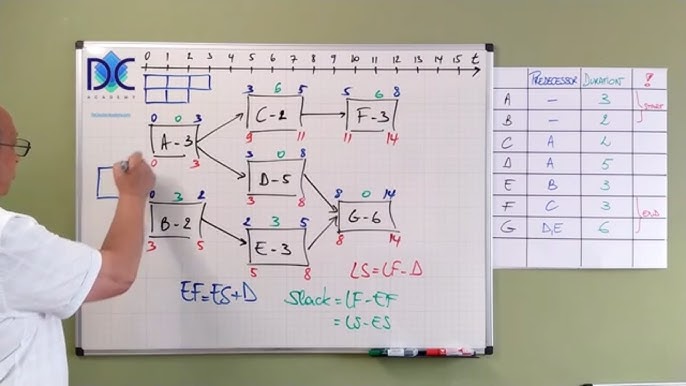 0 1 2 3 4 5 6 7 8 9 10 11 12 13 14 15 t
DC
ACADEMY
3 6 5
C-2
9 11
5 6 8
F-3
11 14
0 0 3
A-3
0 3
3 0 8
D-5
3 8
0 3 2
B-2
3 5
8 0 14
G-6
8 14
2 3 5
E-3
5 8
LS=LF-D
EF=ES+D
Slack=LF-EF
=LS-ES
PREDECESSOR DURATION !
A - 3
B - 2
START
C A 2
D A 5
E B 3
F C 3
G D,E 6
END